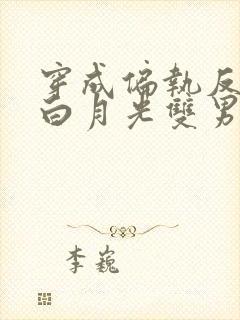 穿成偏執反
白月光雙男
李巍